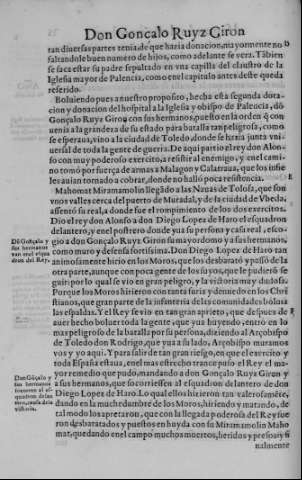 Don Gonçalo Ruyz Giron
tan diuersas partes tenia de que haria donacion, mayormente no
saltandole buen numero de hijos, como adelante se vera. Tãbien
se saca estar su padre sepultado en vna capilla del claustro de la
Iglesia mayor de Palencia, como en el capitulo antes deste queda
referido.
Boluiendo pues a nuestro proposito, hecha esta segunda dota-
cion y donacion del hospital a la Iglesia y obispo de Palencia, dõ
Gonçalo Ruyz Giron con sus hermanos, puesto en la orden q̃ con
uenia a la grandeza de su estado para batalla tan peligrosa, como
se esperaua, vino a la ciudad de Toledo, donde se hazia junta vni-
uersal de toda la gente de guerra. De aqui partio el rey don Alon-
so con muy poderoso exercito, a resistir al enemigo, y en el cami-
no tomò por fuerça de armas a Malagon y Calatraua, que los infie
les auian tornado a cobrar, donde no hallaron mucha resistencia.
Mahomat Miramamolin llegado a las Nauas de Tolosa, que son
vnos valles cerca del puerto de Muradal, y de la ciudad de Vbeda,
assentò su real, donde fue el rompimiento de los dos exercitos.
Dio el rey don Alonso a don Diego Lopez de Haro el esquadron
delantero, y en el postrero donde yua su persona y casa real, esco-
gio a don Gonçalo Ruyz Giron su mayordomo y a sus hermanos,
como muro y defensa fortissima. Don Diego Lopez de Haro tan
animosamente hirio en los Moros, que los desbaratò y passò de la
otra parte, aunque con poca gente de los suyos, que le pudierõ se
guir por lo qual se vio en gran peligro, y la victoria muy dudosa.
Porque los Moros hirieron con tanta furia y denuedo en los Chri-
stianos, que gran parte de la infanteria de las comunidades boluia
las espaldas. Y el Rey se vio en tan gran aprieto, que despues de
auer hecho boluer toda la gente que yua huyendo, entrò en lo
mas peligroso de la batalla por su persona, diziendo al Arçobispo
de Toledo don Rodrigo, que yua a su lado, Arçobispo muramos
vos y yo aqui. Y para salir de tan gran riesgo, en que el exercito y
toda España estaua, en el mas estrecho trance puso el Rey el ma-
yor remedio que pudo, mandando a don Gonçalo Ruyz Giron y
a sus hermanos, que socorriessen al esquadron delantero de don
Diego Lopez de Haro. Lo qual ellos hizieron tan valerosamẽte,
dando en la muchedumbre de los Moros, hiriendo y matando, de
tal modo los apretaron, que con la llegada poderosa del Rey fue
ron desbaratados y puestos en huyda con su Miramamolin Maho
mat, quedando en el campo muchos muertos, heridos y presos: y fi
nalmente
Dõ Gonçalo y
sus hermanos
van en el esqua
dron del Rey.
Don Gõçalo y
sus hermanos